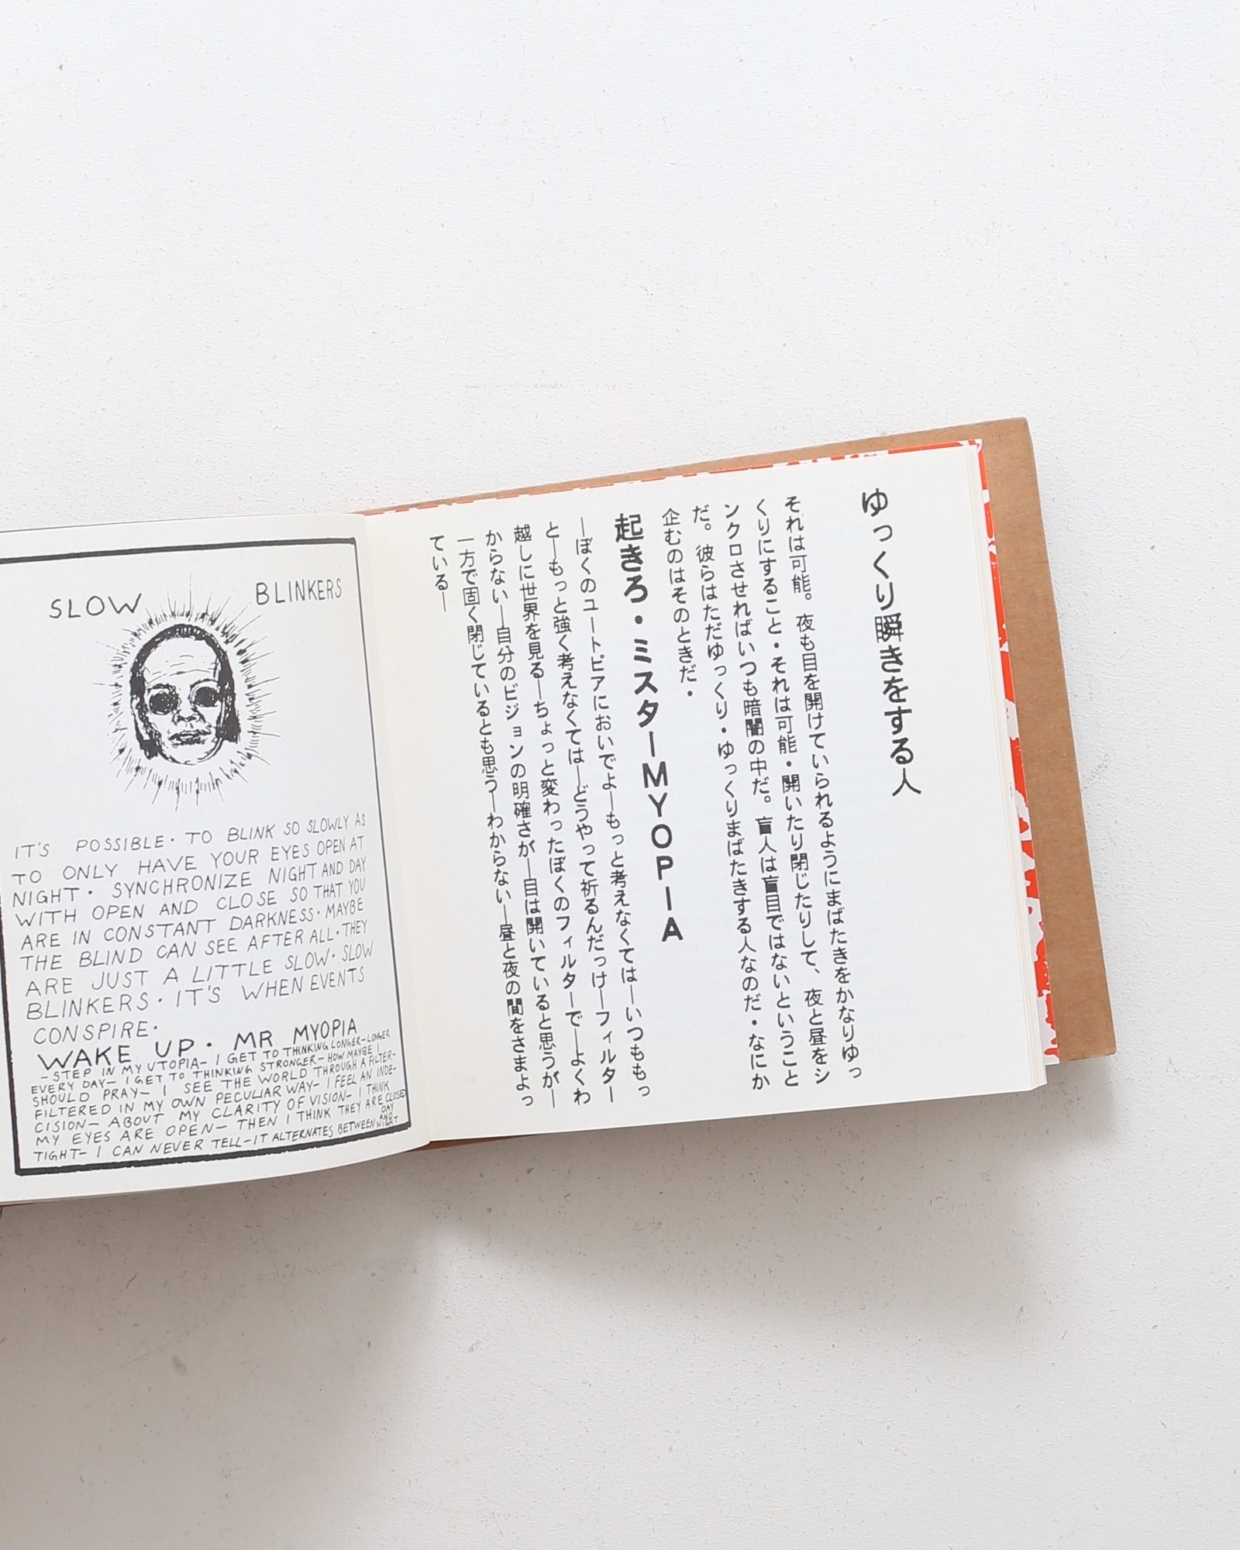 SLOW BLINKERS
IT'S POSSIBLE· TO BLINK SO SLOWLY AS
TO ONLY HAVE YOUR EYES OPEN AT
NIGHT· SYNCHRONIZE NIGHT AND DAY
WITH OPEN AND CLOSE SO THAT YOU
ARE IN CONSTANT DARKNESS· MAYBE
THE BLIND CAN SEE AFTER ALL· THEY
ARE JUST A LITTLE SLOW· SLOW
BLINKERS· IT'S WHEN EVENTS
CONSPIRE·
WAKE UP· MR MYOPIA
-STEP IN MY UTOPIA- I GET TO THINKING LONGER-LONGER
EVERY DAY- I GET TO THINKING STRONGER- HOW MAYBE I
SHOULD PRAY- I SEE THE WORLD THROUGH A FILTER-
FILTERED IN MY OWN PECULIAR WAY- I FEEL AN INDE-
CISION- ABOUT MY CLARITY OF VISION- I THINK
MY EYES ARE OPEN- THEN I THINK THEY ARE CLOSED
TIGHT- I CAN NEVER TELL-IT ALTERNATES BETWEEN DAY AND NIGHT
ゆっくり瞬きをする人
それは可能。夜も目を開けていられるようにまばたきをかなりゆっ
くりにすること・それは可能・開いたり閉じたりして、夜と昼をシ
ンクロさせればいつも暗闇の中だ。盲人は盲目ではないということ
だ。彼らはただゆっくり・ゆっくりまばたきする人なのだ・なにか
企むのはそのときだ・
起きろ・ミスターMYOPIA
―ぼくのユートピアにおいでよ―もっと考えなくては―いつももっ
と―もっと強く考えなくては―どうやって祈るんだっけ―フィルター
越しに世界を見る―ちょっと変わったぼくのフィルターで―よくわ
からない―自分のビジョンの明確さが―目は開いていると思うが―
一方で固く閉じているとも思う―わからない―昼と夜の間をさまよっ
ている―